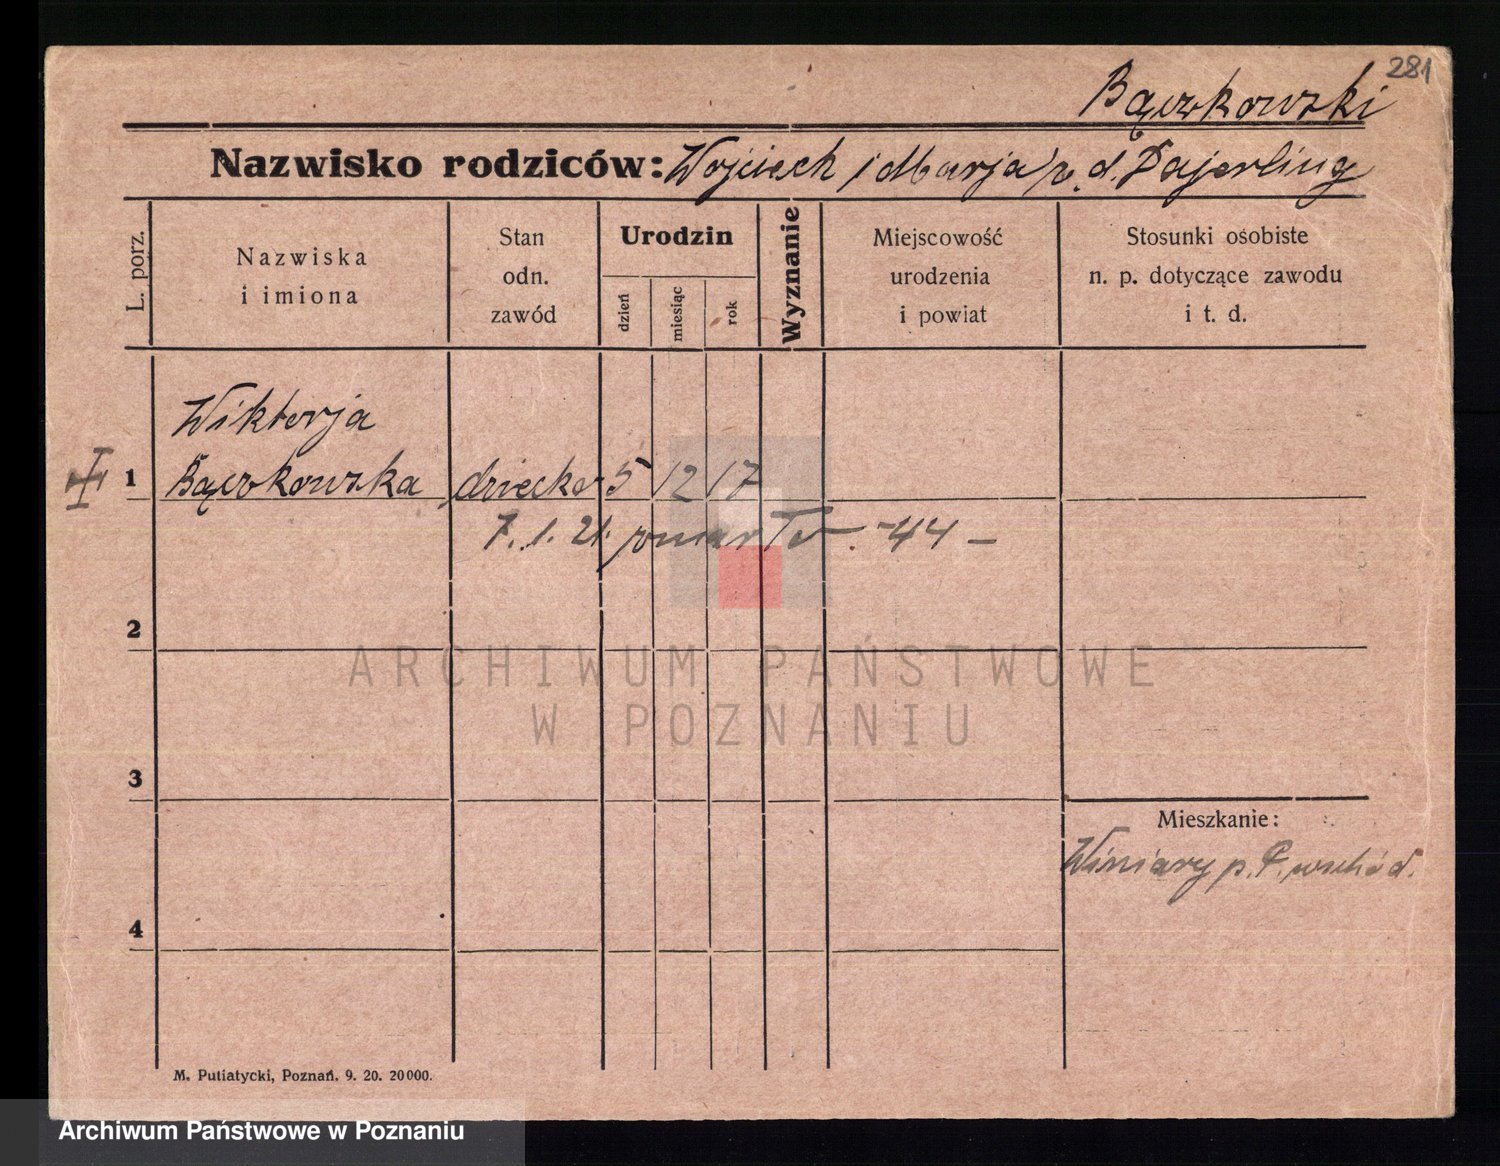 281
Bączkowski
Nazwisko rodziców: Wojciech i Marja z d. Bajerling
L. porz.
Nazwiska
i imiona
Stan
odn.
zawód
Urodzin
dzień
miesiąc
rok
Wyznanie
Miejscowość
urodzenia
i powiat
Stosunki osobiste
n. p. dotyczące zawodu
i t. d.
Wiktorja
1 Bączkowska dziecko 5 12 17
7. 1. 21. zmarła -44-
2
3
4
Mieszkanie:
Winiary p. P. wschód.
M. Putiatycki, Poznań. 9. 20. 20000.
ARCHIWUM PAŃSTWOWE
W POZNANIU
Archiwum Państwowe w Poznaniu